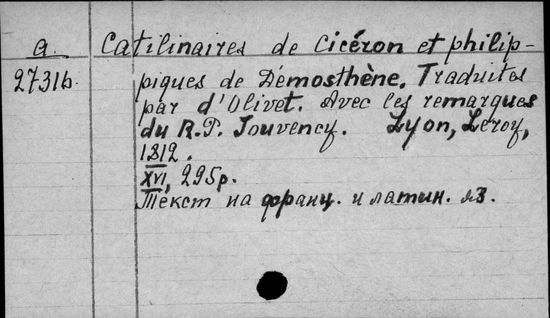 a. Catilinaires de Cicéron et philip-
2731b. piques de Démosthène. Traduites
par d'Olivet. Avec les remarques
du R.P. Jouvency. Lyon, Leroy,
1812.
XVI, 295p.
Текст на франц. и латин. яз.